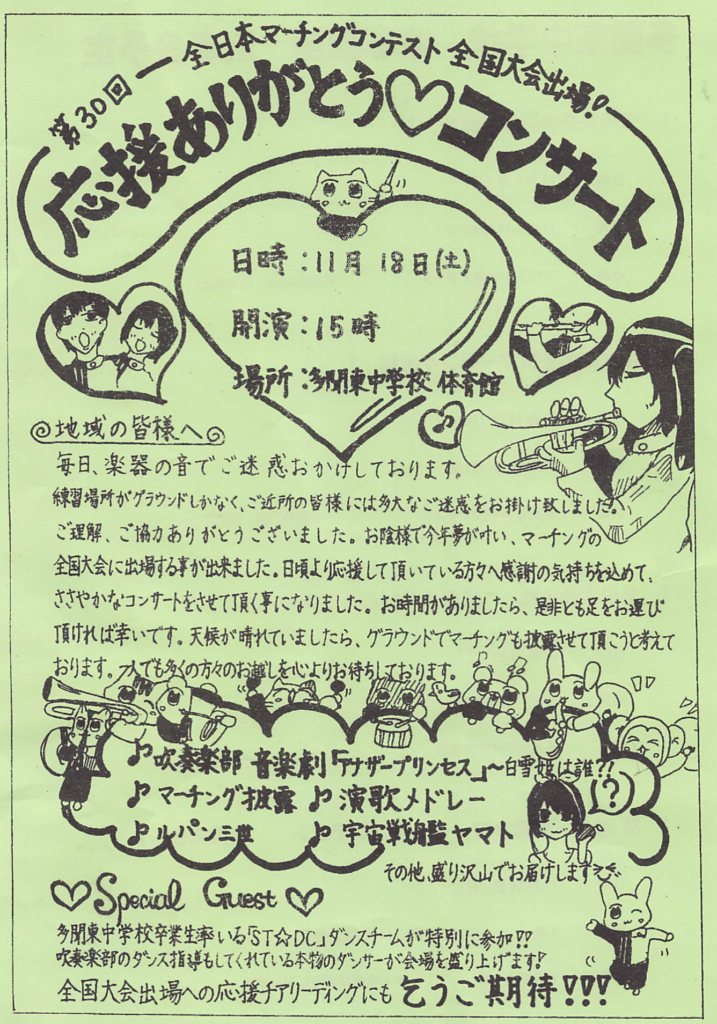 第30回 全日本マーチングコンテスト 全国大会出場!
応援ありがとう♡コンサート
日時:11月18日(土)
開演:15時
場所:多聞東中学校 体育館
◎地域の皆様へ◎
毎日、楽器の音でご迷惑おかけしております。
練習場所がグラウンドしかなく、ご近所の皆様には多大なご迷惑をお掛け致しました。
ご理解、ご協力ありがとうございました。お陰様で今年夢が叶い、マーチングの
全国大会に出場する事が出来ました。日頃より応援して頂いている方々へ感謝の気持ちを込めて、
ささやかなコンサートをさせて頂く事になりました。お時間がありましたら、是非とも足をお運び
頂ければ幸いです。天候が晴れていましたら、グラウンドでマーチングも披露させて頂こうと考えて
おります。一人でも多くの方々のお越しを心よりお待ちしております。
♪吹奏楽部 音楽劇「アナザープリンセス」~白雪姫は誰?!
♪マーチング披露 ♪演歌メドレー
♪ルパン三世 ♪宇宙戦艦ヤマト
?
その他、盛り沢山でお届けします
♡Special Guest♡
多聞東中学校卒業生率いる「ST☆DC」ダンスチームが特別に参加!!
吹奏楽部のダンス指導もしてくれている本物のダンサーが会場を盛り上げます!
全国大会出場への応援チアリーディングにも乞うご期待!!!